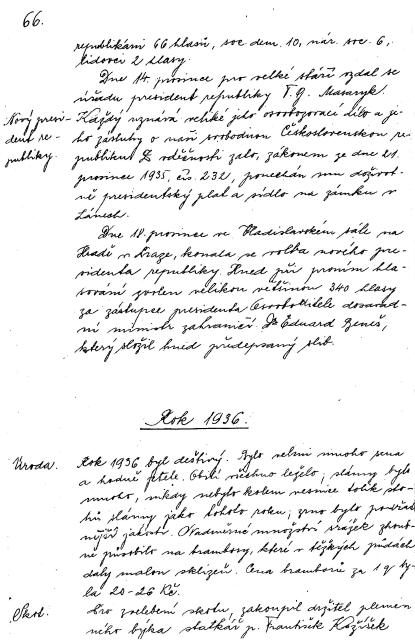 66.
republikáni 66 hlasů, soc. dem. 10, nár. soc. 6,
lidovci 2 hlasy.
Dne 14. prosince pro velké stáří vzdal se
úřadu president republiky T. G. Masaryk.
Nový presi-
dent re-
publiky.
Každý uznává veliké jeho osvobozovací dílo a je-
ho zásluhy o naši svobodnou Československou re-
publiku. Z vděčnosti zato, zákonem ze dne 21.
prosince 1935, čís. 232, ponechán mu doživot-
ně presidentský plat a sídlo na zámku v
Lánech.
Dne 18. prosince ve Vladislavském sále na
Hradě v Praze, konala se volba nového pre-
sidenta republiky. Hned při prvním hla-
sování zvolen velikou většinou 340 hlasy
za zástupce presidenta Osvoboditele dosavad-
ní ministr zahraničí Dr Eduard Beneš,
který složil hned předepsaný slib.
Rok 1936.
Úroda.
Rok 1936 byl deštivý. Bylo velmi mnoho sena
a hodně jetele. Obilí všechno leželo; slámy bylo
mnoho, nikdy nebylo kolem vesnice tolik sto-
hů slámy jako tohoto roku; zrno bylo
jakosti. Nadměrné množství srážek zhoub-
ně působilo na brambory, které v těžkých půdách
daly malou sklizeň. Cena bramborů za 1 q by-
la 20-26 Kč.
Skot.
Pro zvelebení skotu, zakoupil držitel plemen-
ného býka statkář p. František